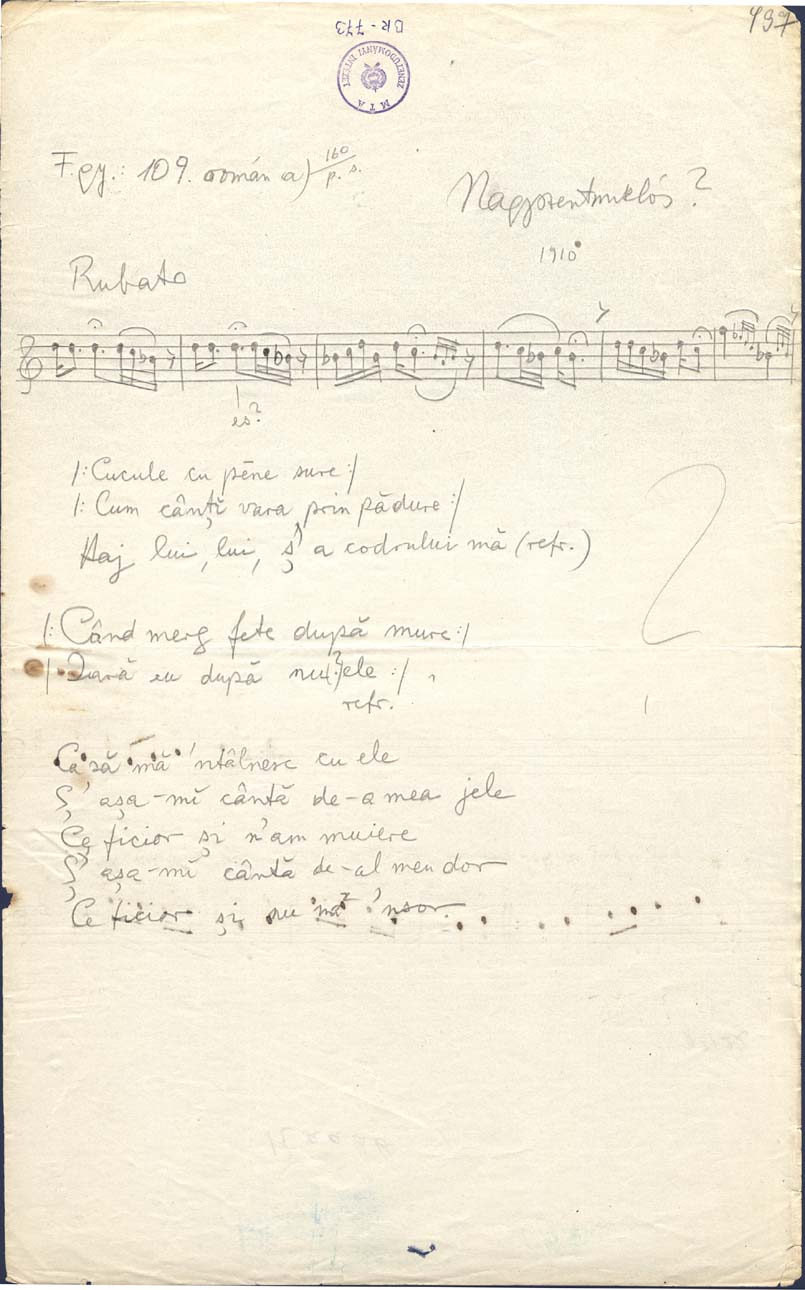 497
BR - 773
ZENETUDOMÁNYI INTÉZET
MTA
F. gy.: 109. román a) 160/p. s.
Nagyszentmiklós?
1910
Rubato
es?
/: Cucule cu pēne sure :/
/: Cum cânţĭ vara prin pădure :/
Haj lui, lui, ș'a codrului mă (refr.)
/: Când merg fete după mure :/
/: Dară eu după :/
refr.
Ca să mă 'ntâlnesc cu ele
Ș'așa-mĭ cântă de-a mea jele
Ce ficior și n'am muiere
Ș'așa-mĭ cântă de-al meu dor
Ce ficior și nu mă 'nsor.